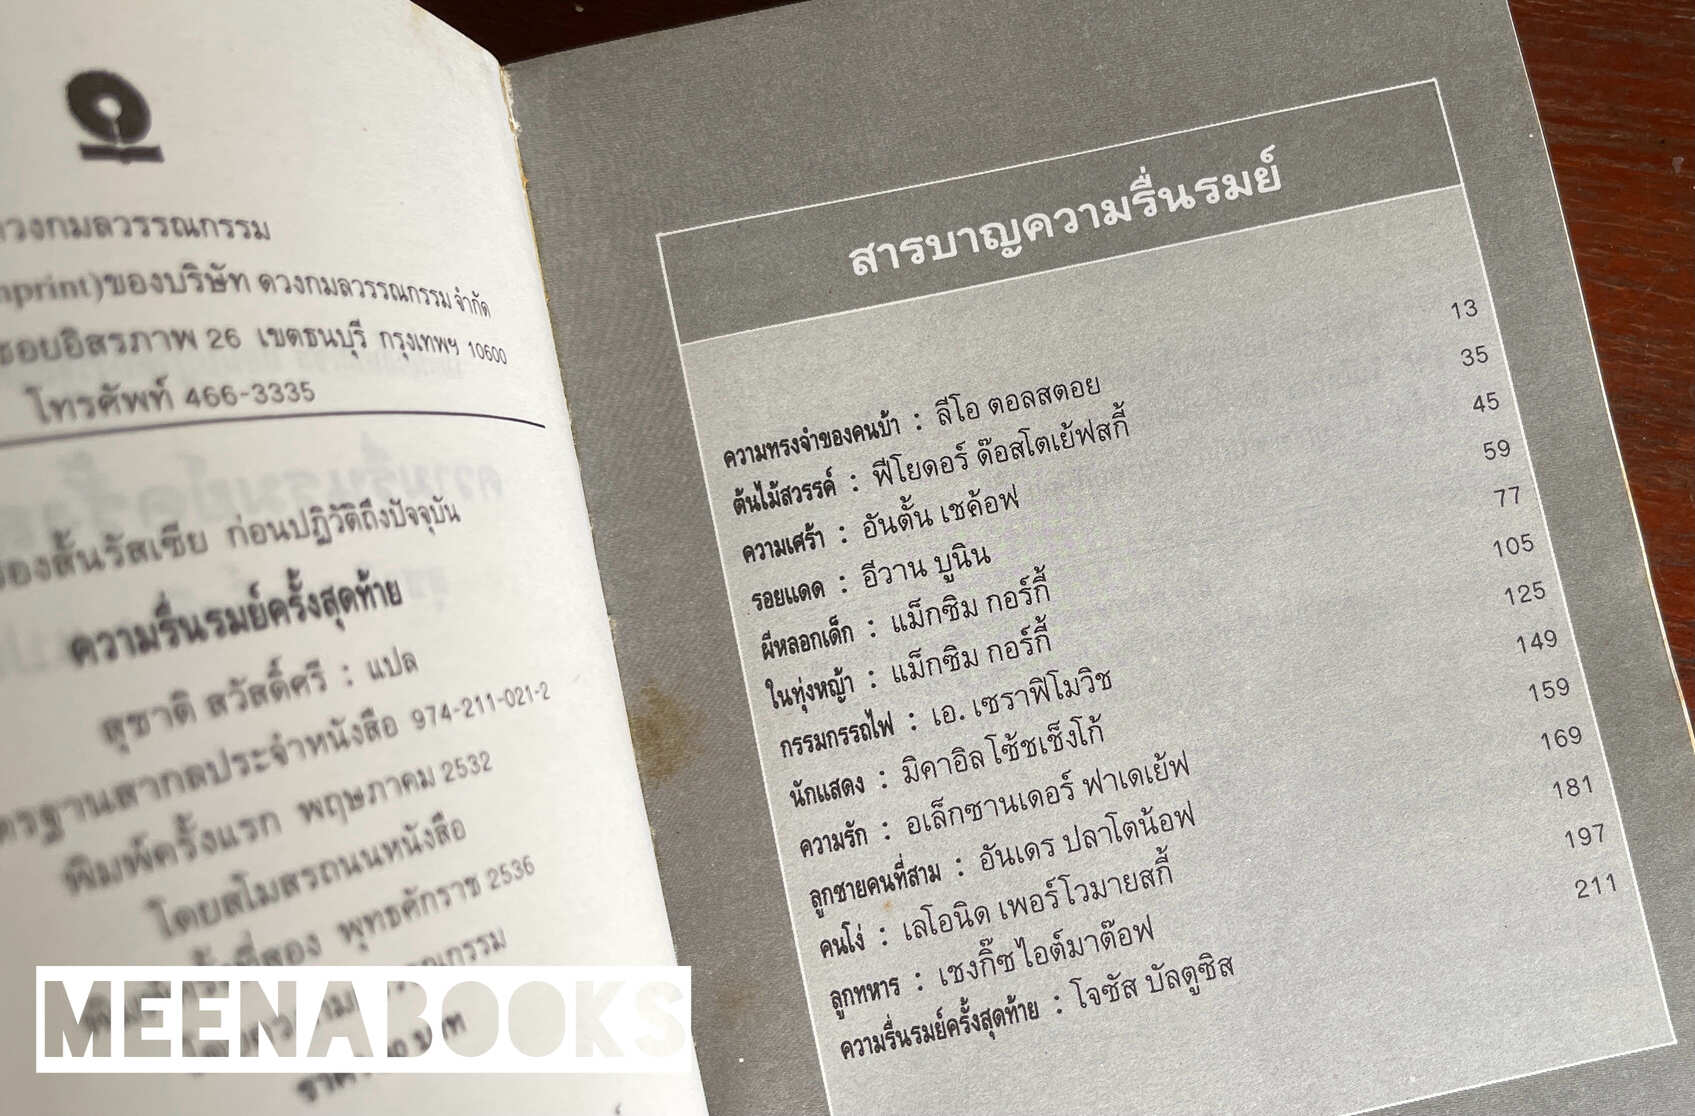 วงกมลวรรณกรรม
print)ของบริษัท ดวงกมลวรรณกรรม จำกัด
ซอยอิสรภาพ 26 เขตธนบุรี กรุงเทพฯ 10600
โทรศัพท์ 466-3335
สั้นรัสเซีย ก่อนปฏิวัติถึงปัจจุบัน
ความรื่นรมย์ครั้งสุดท้าย
สุชาติ สวัสดิ์ศรี : แปล
ฐานสากลประจำหนังสือ 974-211-021-2
พิมพ์ครั้งแรก พฤษภาคม 2532
โดยสโมสรถนนหนังสือ
ที่สอง พุทธศักราช 2536
MEENABOOKS
สารบาญความรื่นรมย์
ความทรงจำของคนบ้า : ลีโอ ตอลสตอย 13
ต้นไม้สวรรค์ : ฟีโยดอร์ ด๊อสโตเย้ฟสกี้ 35
ความเศร้า : อันตั้น เชค้อฟ 45
รอยแดด : อีวาน บูนิน 59
ผีหลอกเด็ก : แม็กซิม กอร์กี้ 77
ในทุ่งหญ้า : แม็กซิม กอร์กี้ 105
กรรมกรรถไฟ : เอ. เซราฟิโมวิช 125
นักแสดง : มิคาอิล โซ้ชเช็งโก้ 149
ความรัก : อเล็กซานเดอร์ ฟาเดเย้ฟ 159
ลูกชายคนที่สาม : อันเดร ปลาโตน้อฟ 169
คนโง่ : เลโอนิด เพอร์โวมายสกี้ 181
ลูกทหาร : เชงกิ๊ซ ไอต์มาต๊อฟ 197
ความรื่นรมย์ครั้งสุดท้าย : โจซัส บัลตูซิส 211